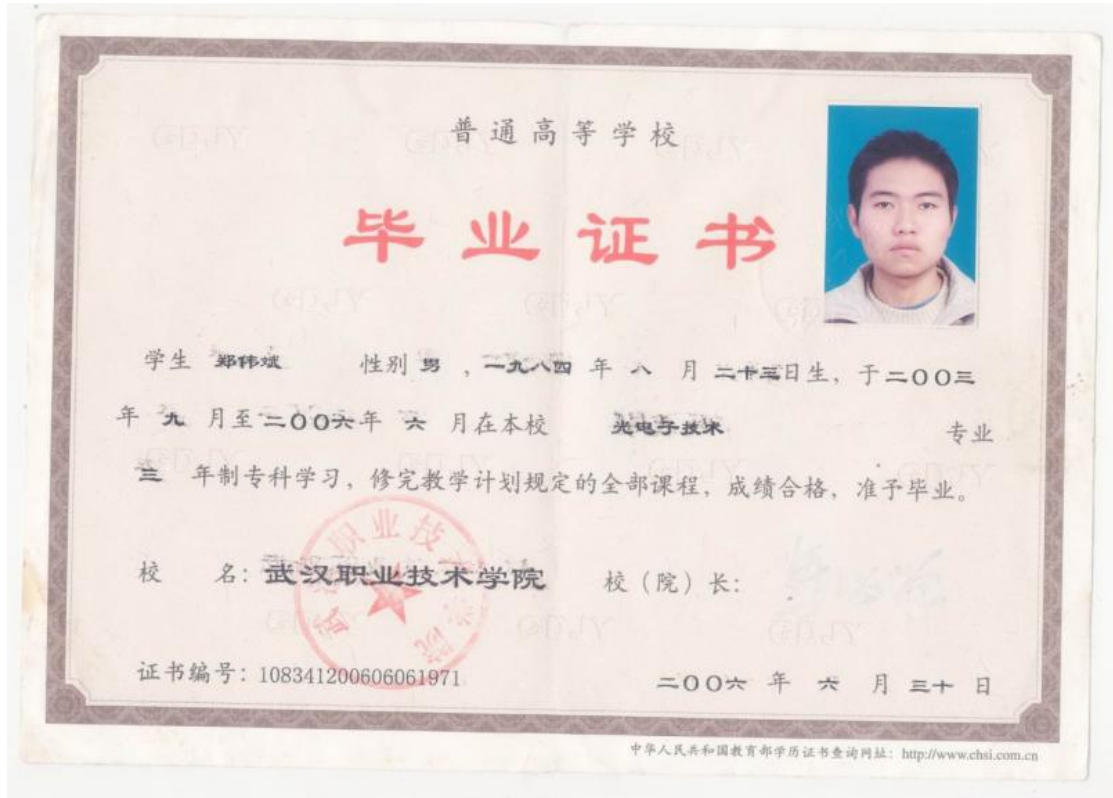 普通高等学校
毕业证书
学生 郑伟斌 性别 男 ，一九八四 年 八 月 二十三日生，于二〇〇三
年 九 月至二〇〇六年 六 月在本校 光电子技术 专业
三 年制专科学习，修完教学计划规定的全部课程，成绩合格，准予毕业。
校 名：武汉职业技术学院 校（院）长：
证书编号：108341200606061971 二〇〇六 年 六 月 三十 日
中华人民共和国教育部学历证书查询网址：http://www.chsi.com.cn